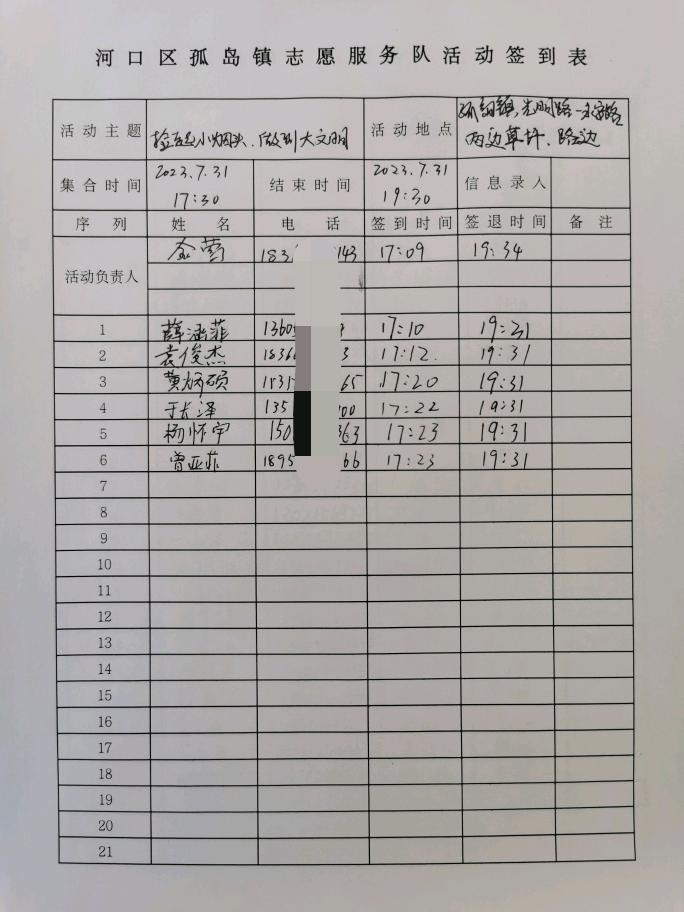 河口区孤岛镇志愿服务队活动签到表
活动主题 捡起小烟头、做到大文明 活动地点 孤岛镇,光明路
两边草坪、路边
集合时间 2023.7.31 17:30 结束时间 2023.7.31 19:30 信息录入
序列 姓名 电话 签到时间 签退时间 备注
活动负责人 金莺 183 143 17:09 19:34
1 薛涵菲 1360 17:10 19:31
2 袁俊杰 1836 3 17:12. 19:31
3 黄炳硕 1831 65 17:20 19:31
4 于长泽 135 00 17:22 19:31
5 杨怀宇 150 363 17:23 19:31
6 曾亚菲 1895 66 17:23 19:31
7
8
9
10
11
12
13
14
15
16
17
18
19
20
21